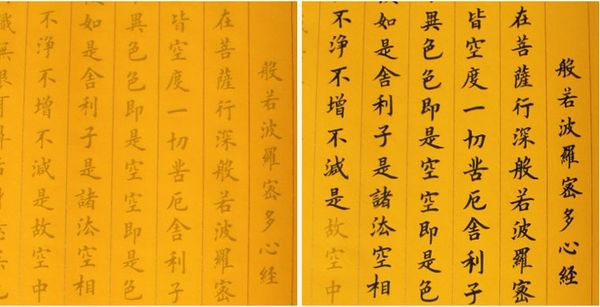 般若波羅密多心經
在菩薩行深般若波羅密
皆空度一切苦厄舍利子
異色色即是空空即是色
如是舍利子是諸法空相
不淨不增不減是故空中
般若波羅密多心經
在菩薩行深般若波羅密
皆空度一切苦厄舍利子
異色色即是空空即是色
如是舍利子是諸法空相
不淨不增不減是故空中